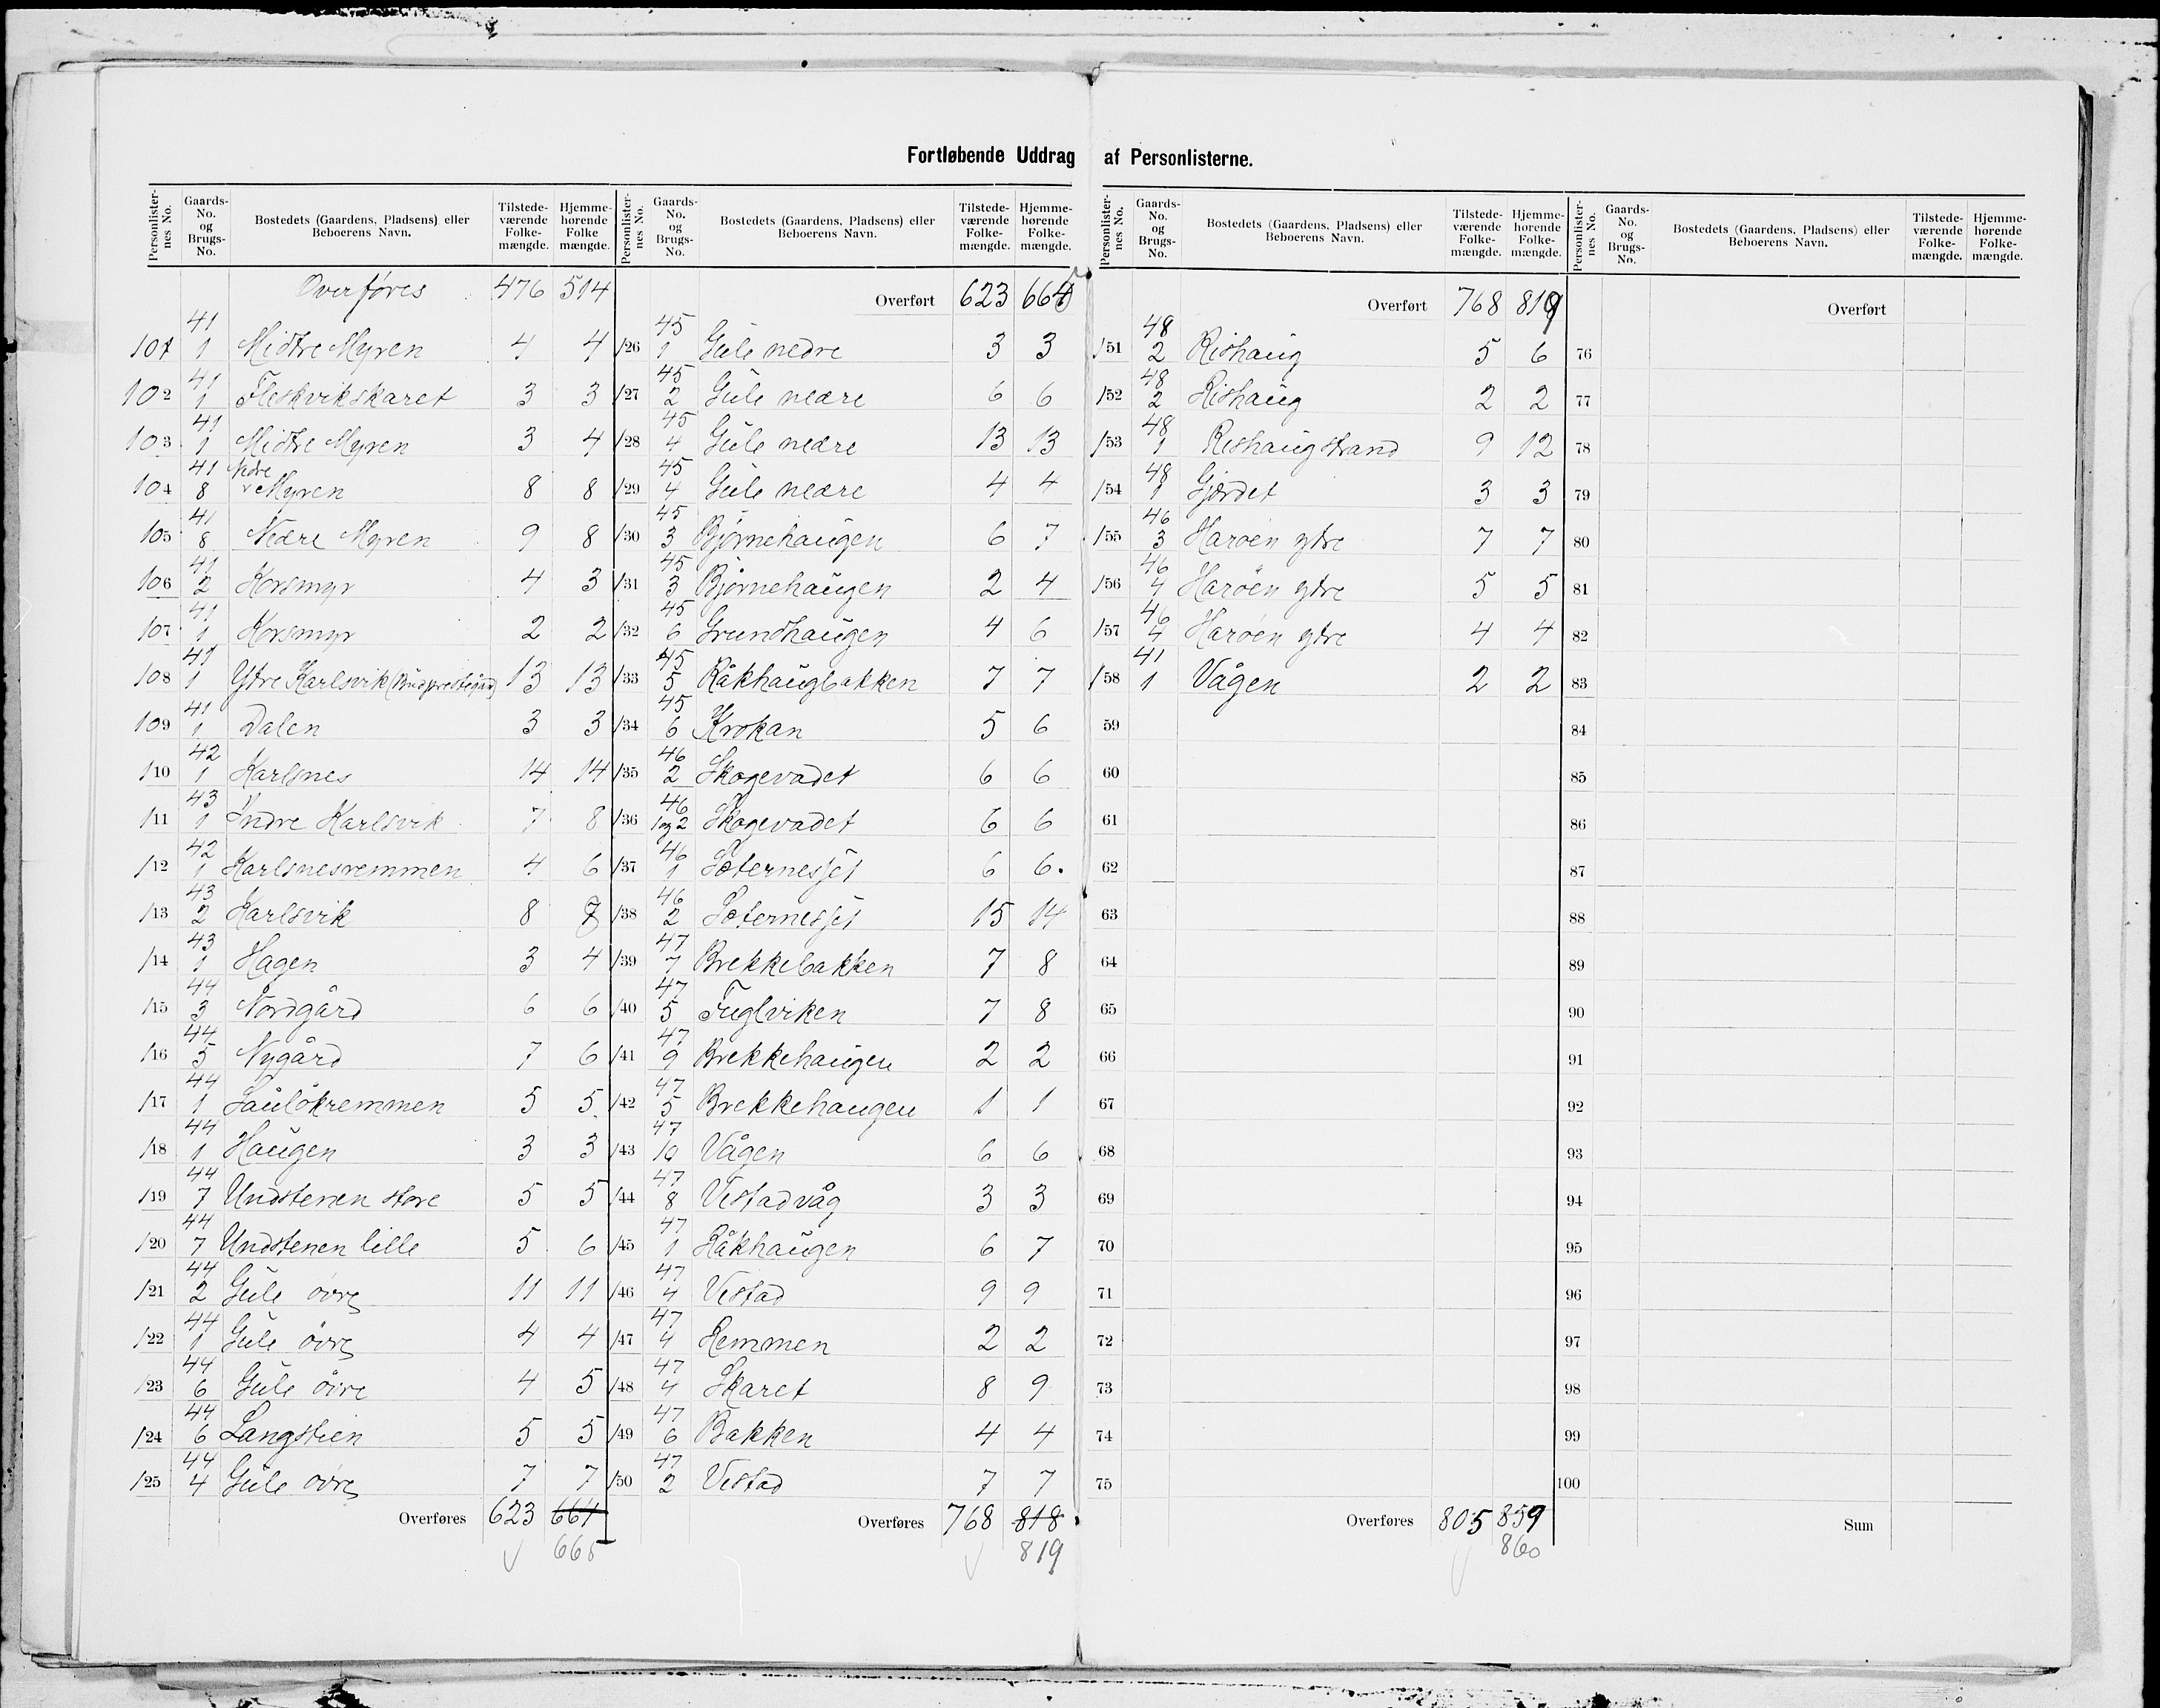 Fortløbende Uddrag af Personlisterne.
Personlisternes No. Gaards-No. og Brugs-No. Bostedets (Gaardens, Pladsens) eller Beboerens Navn. Tilstedeværende Folkemængde. Hjemmehørende Folkemængde.
Overføres 476 514
101 41 1 Midtre Myren 4 4
102 41 1 Fleskvikskaret 3 3
103 41 1 Midtre Myren 3 4
104 41 8 Nedre Myren 8 8
105 41 8 Nedre Myren 9 8
106 41 2 Korsmyr 4 3
107 41 1 Korsmyr 2 2
108 41 1 Ytre Karlsvik (Budprestegård) 13 13
109 41 1 Dalen 3 3
110 42 1 Karlsnes 14 14
111 43 1 Indre Karlsvik 7 8
112 42 1 Karlsnesremmen 4 6
113 43 2 Karlsvik 8 8
114 43 1 Hagen 3 4
115 44 3 Nordgård 6 6
116 44 5 Nygård 7 6
117 44 1 Sauløkremmen 5 5
118 44 1 Haugen 3 3
119 44 7 Undstenen store 5 5
120 44 7 Undstenen lille 5 6
121 44 2 Gule øvre 11 11
122 44 1 Gule øvre 4 4
123 44 6 Gule øvre 4 5
124 44 6 Langstien 5 5
125 44 4 Gule øvre 7 7
Overføres 623 664
665
Personlisternes No. Gaards-No. og Brugs-No. Bostedets (Gaardens, Pladsens) eller Beboerens Navn. Tilstedeværende Folkemængde. Hjemmehørende Folkemængde.
Overført 623 664
126 45 1 Gule nedre 3 3
127 45 2 Gule nedre 6 6
128 45 4 Gule nedre 13 13
129 45 4 Gule nedre 4 4
130 45 3 Bjørnehaugen 6 7
131 45 3 Bjørnehaugen 2 4
132 45 6 Grundhaugen 4 6
133 45 5 Råkhaugbakken 7 7
134 45 6 Krokan 5 6
135 46 2 Skogevadet 6 6
136 46 1 og 2 Skogevadet 6 6
137 46 1 Sæternesset 6 6
138 46 2 Sæternesset 15 14
139 47 7 Brekkebakken 7 8
140 47 5 Fuglviken 7 8
141 47 9 Brekkehaugen 2 2
142 47 5 Brekkehaugen 1 1
143 47 10 Vågen 6 6
144 47 8 Vestadvåg 3 3
145 47 1 Råkhaugen 6 7
146 47 4 Vestad 9 9
147 47 4 Remmen 2 2
148 47 4 Skaret 8 9
149 47 6 Bakken 4 4
150 47 2 Vestad 7 7
Overføres 768 818
819
Personlisternes No. Gaards-No. og Brugs-No. Bostedets (Gaardens, Pladsens) eller Beboerens Navn. Tilstedeværende Folkemængde. Hjemmehørende Folkemængde.
Overført 768 819
151 48 2 Rishaug 5 6
152 48 2 Rishaug 2 2
153 48 1 Rishaugstrand 9 12
154 48 1 Gjærdet 3 3
155 46 3 Harøen ytre 7 7
156 46 4 Harøen ytre 5 5
157 46 4 Harøen ytre 4 4
158 41 1 Vågen 2 2
59
60
61
62
63
64
65
66
67
68
69
70
71
72
73
74
75
Overføres 805 859
860
Personlisternes No. Gaards-No. og Brugs-No. Bostedets (Gaardens, Pladsens) eller Beboerens Navn. Tilstedeværende Folkemængde. Hjemmehørende Folkemængde.
Overført
76
77
78
79
80
81
82
83
84
85
86
87
88
89
90
91
92
93
94
95
96
97
98
99
100
Sum